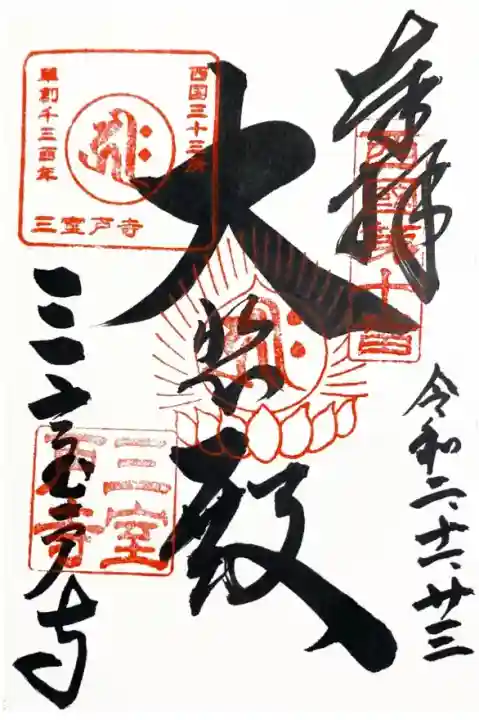 奉拝
西國第十番
令和二、十二、廿三
大悲殿
西国三十三所
草創千三百年
三室戸寺
三室戸寺
三室戸寺